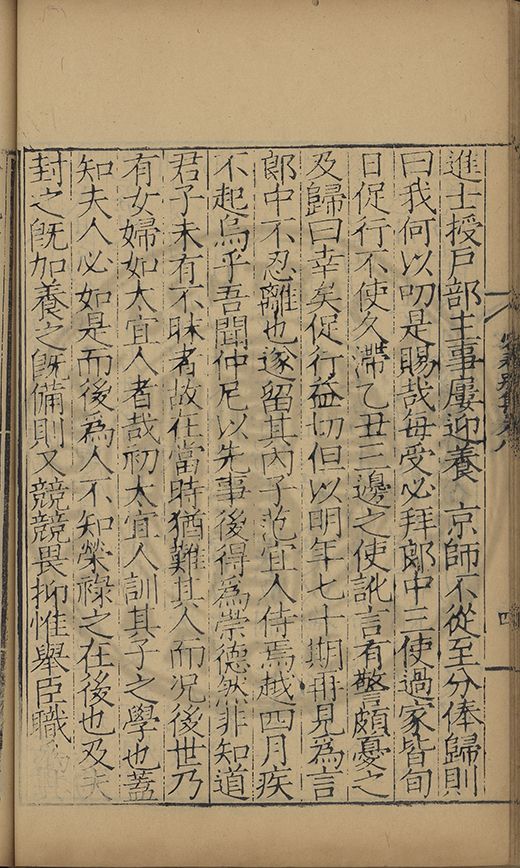 進士授戸部主事屢迎養　京師不從至分俸歸則
曰我何以叨是賜哉每受必拜郎中三使過家皆旬
日促行不使久滯乙丑三邊之使訛言有警頗憂之
及歸曰幸矣促行益切但以明年七十期再見為言
郎中不忍離也遂留其內子范宜人侍焉越四月疾
不起烏乎吾聞仲尼以先事後得為崇德然非知道
君子未有不昧者故在當時猶難其人而况後世乃
有女婦如太宜人者哉初太宜人訓其子之學也蓋
知夫人必如是而後爲人不知榮祿之在後也及夫
封之旣加養之旣備則又競競畏抑惟舉臣職爲